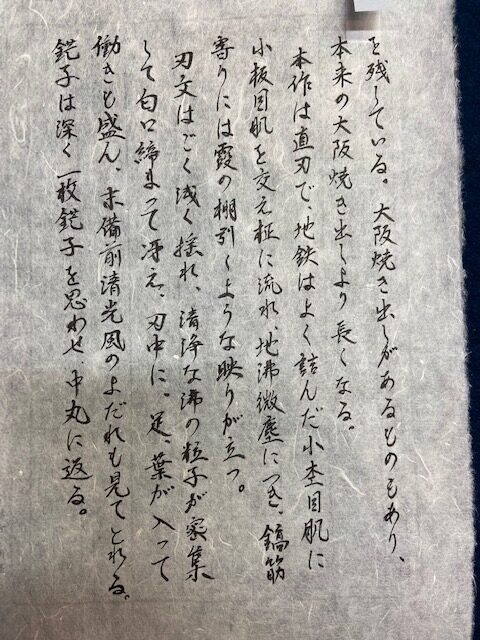 を残している。大阪焼き出しがあるものもあり、
本来の大阪焼き出しより長くなる。
本作は直刃で、地鉄はよく詰んだ小杢目肌に
小板目肌を交え柾に流れ、地沸微塵につき、鎬筋
寄りには霞の棚引くような映りが立つ。
刃文はごく浅く揺れ、清浄な沸の粒子が密集
して匂口締まって冴え、刃中に、足、葉が入って
働きも盛ん、末備前清光風のよだれも見てとれる。
鋩子は深く一枚鋩子を思わせ中丸に返る。